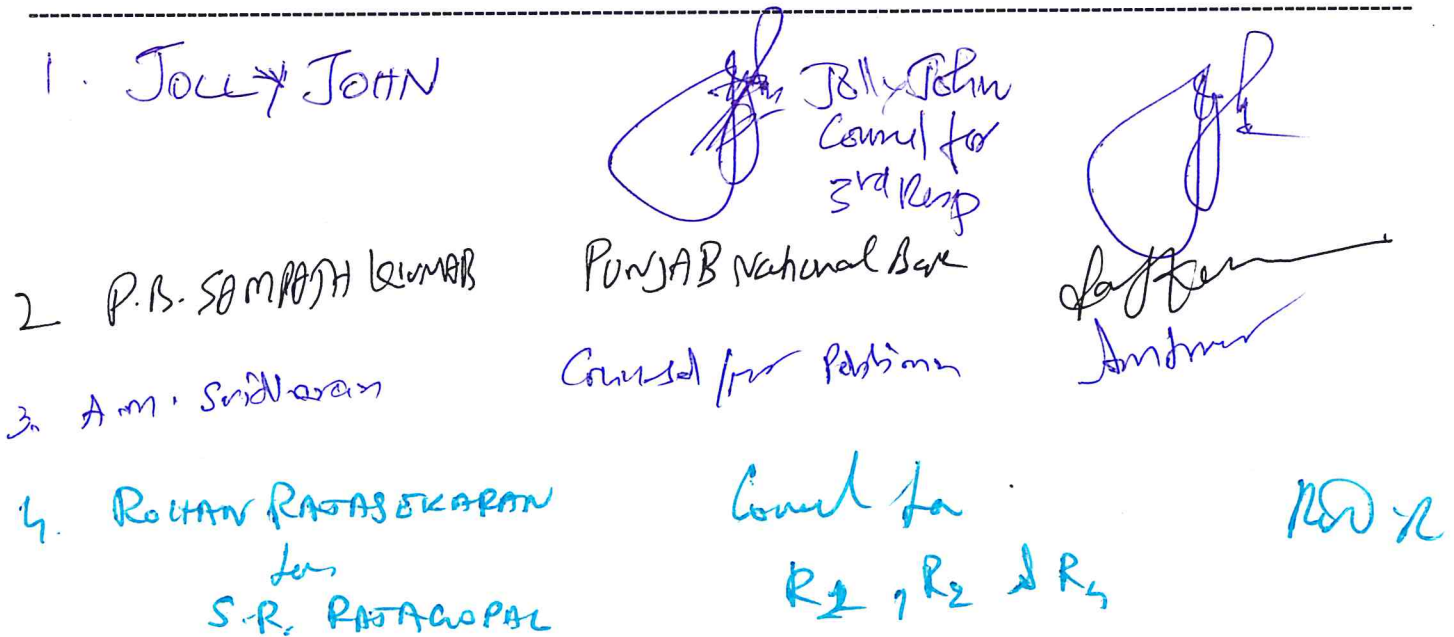 1. JOLLY JOHN Jolly John
Counsel for
3rd Resp
2 P.B. SAMPATH KUMAR PUNJAB National Bank
3. A.M. Sridharan Counsel for Petitioner
4. ROHAN RAJASEKARAN Counsel for
for R1, R2 & R4
S.R. RAJAGOPAL